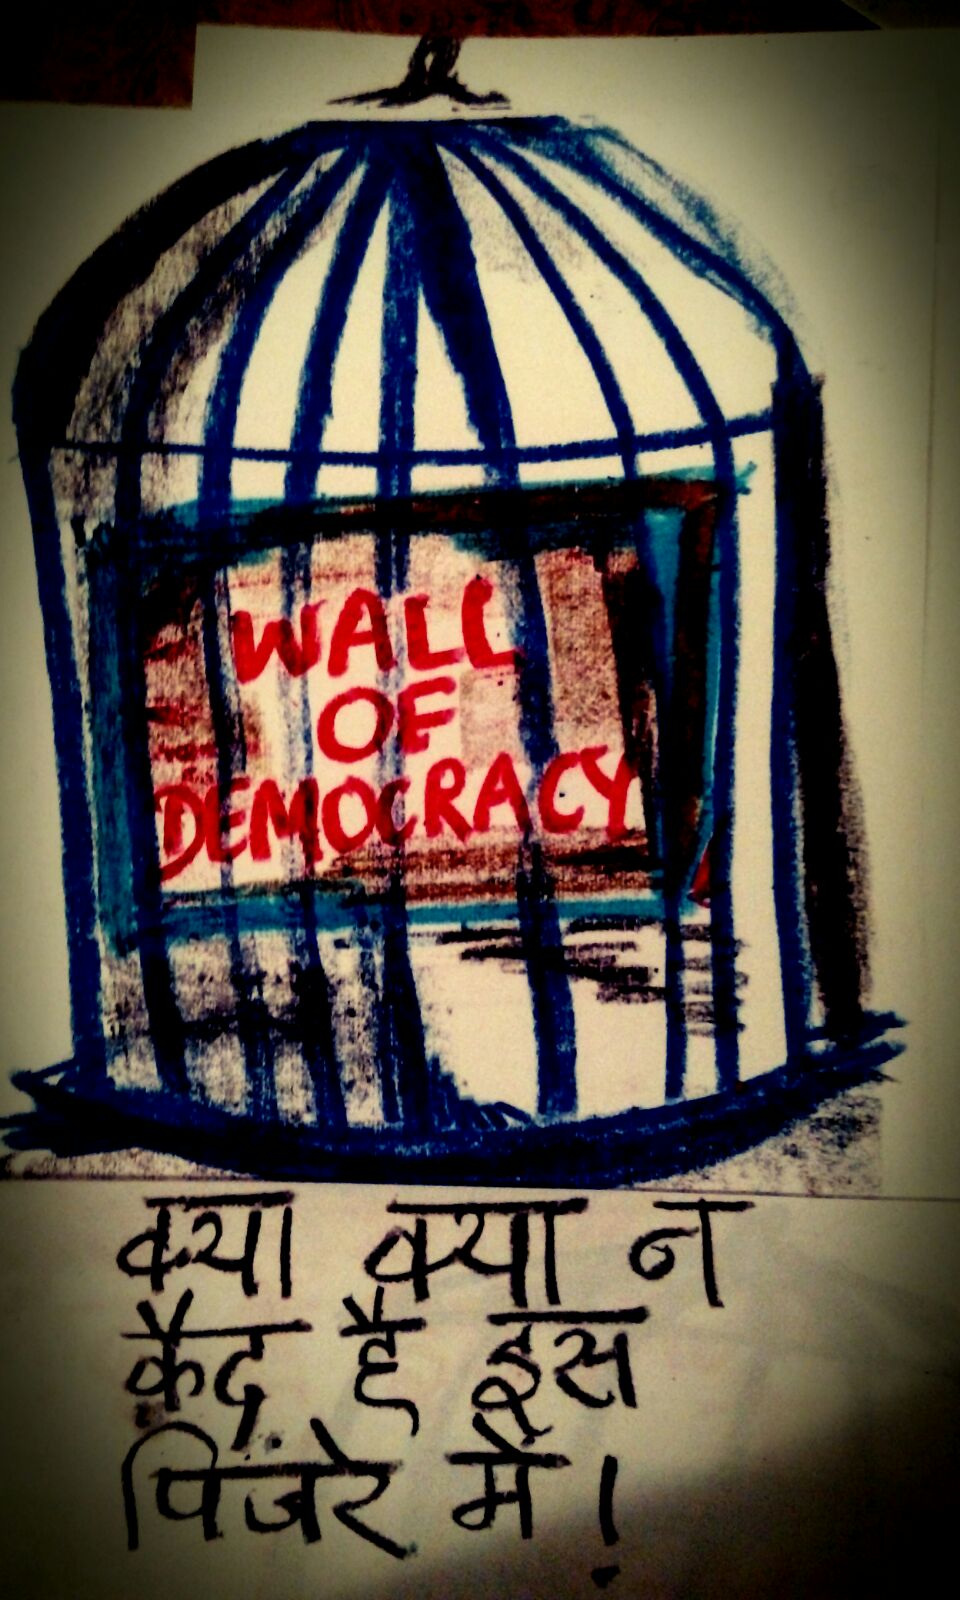 WALL
OF
DEMOCRACY
क्या क्या न
कैद है इस
पिंजरे में!